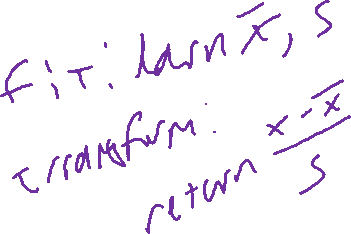 fit: learn x̄, s
transform:
return (x - x̄)/s